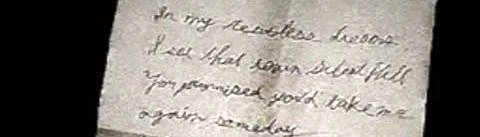 In my restless dreams,
I see that town Silent Hill
You promised you'd take me
again someday